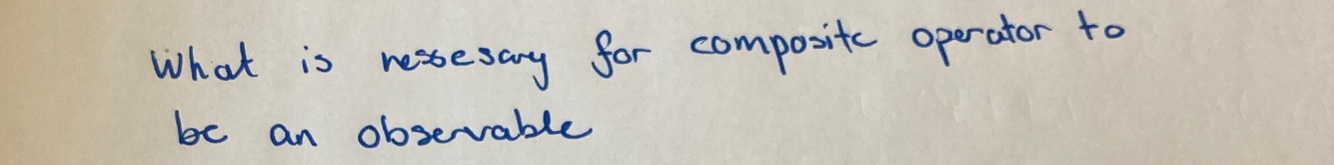 What is nessesary for composite operator to
be an observable